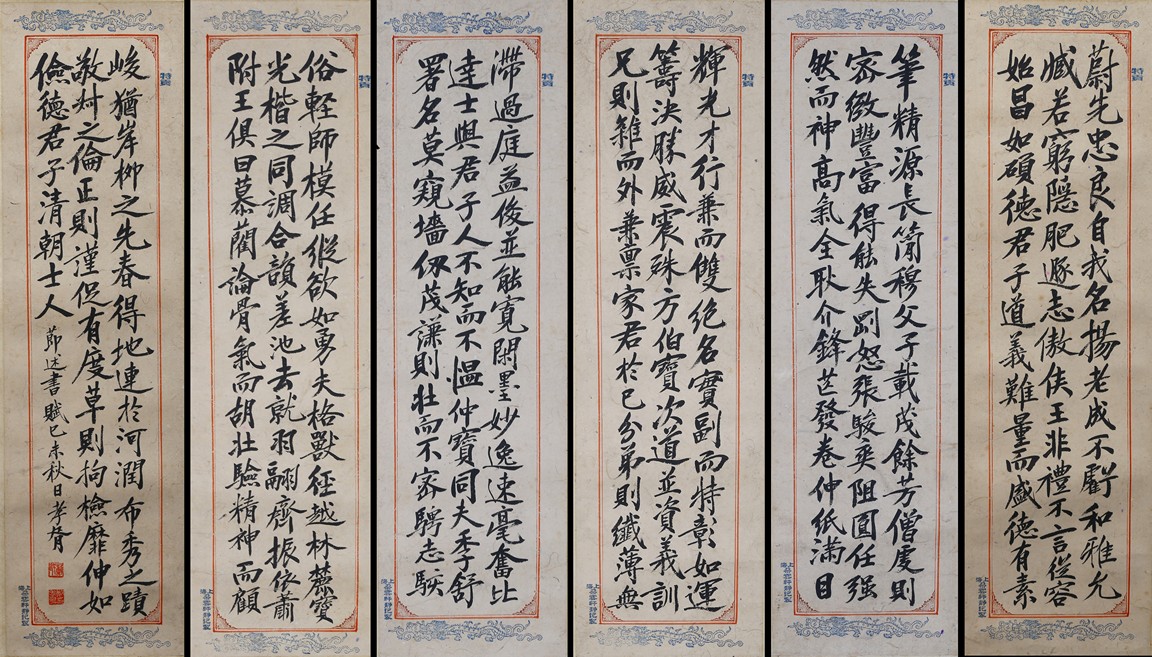 蔚先忠良自我名揚老成不虧和雅允
臧若窮隱肥遯志傲侯王非禮不言從容
始昌如碩德君子道義難量而盛德有素
特貢
筆精源長簡穆父子載茂餘芳僧虔則
密緻豐富得能失剛怒張駿爽阻圓任强
然而神高氣全耿介鋒芒發卷伸紙滿目
特貢
輝光才行兼而雙絕名實副而特彰如運
籌決勝威震殊方伯寶次道並資義訓
兄則雖而外兼稟家君於已分弟則纖薄無
特貢
滯過庭益俊並能寬閑墨妙逸速毫奮比
達士與君子人不知而不慍仲寶同夫季舒
署名莫窺墻仞茂謙則壯而不密騁志駭
特貢
俗輕師模任縱欲如勇夫格獸徑越林麓寶
光楷之同調合韻差池去就羽翮齊振依蕭
附王俱曰慕藺論骨氣而胡壯驗精神而顧
特貢
峻猶岸柳之先春得地連於河潤布秀之蹟
敬叔之倫正則謹促有度草則拘檢靡伸如
儉德君子清朝士人
節述書賦己未秋日孝胥
特貢